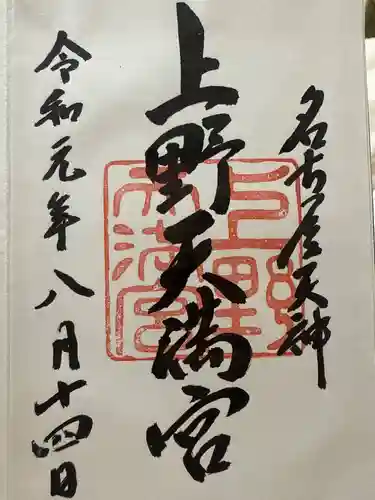 名古屋天神
上野天満宮
上野天満宮
令和元年八月十四日